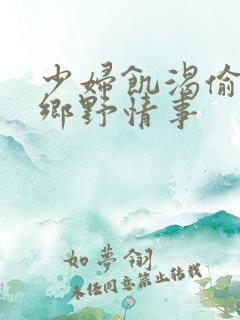 少婦飢渴偷
鄉野情事
如夢翎
未經同意禁止轉載